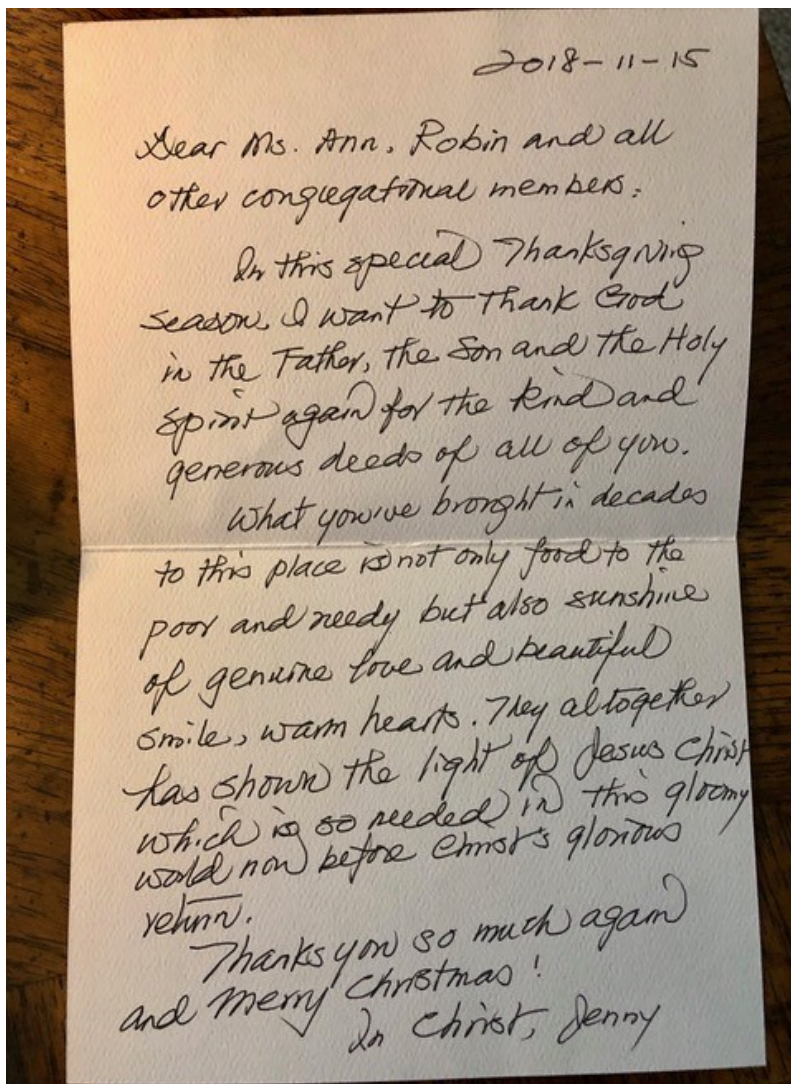 2018-11-15
Dear Ms. Ann, Robin and all
other congregational members:
In this special Thanksgiving
season, I want to thank God
in the Father, the Son and the Holy
spirit again for the kind and
generous deeds of all of you.
What you've brought in decades
to this place is not only food to the
poor and needy but also sunshine
of genuine love and beautiful
smile, warm hearts. They altogether
has shown the light of Jesus Christ
which is so needed in this gloomy
world now before Christ's glorious
return.
Thanks you so much again
and Merry Christmas!
In Christ, Jenny